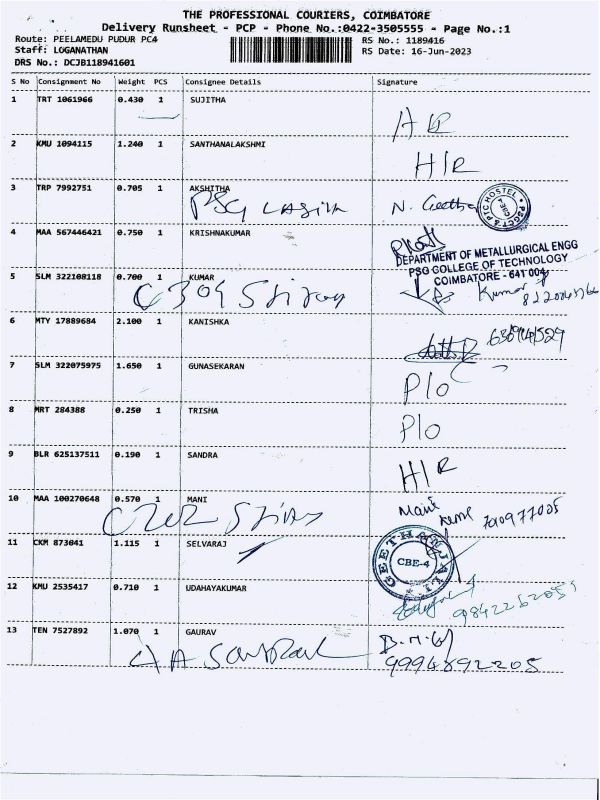 THE PROFESSIONAL COURIERS, COIMBATORE
Delivery Runsheet - PCP - Phone No.:0422-3505555 - Page No.:1
Route: PEELAMEDU PUDUR PC4 RS No.: 1189416
Staff: LOGANATHAN RS Date: 16-Jun-2023
DRS No.: DCJB118941601
S No Consignment No Weight PCS Consignee Details Signature
1 TRT 1061966 0.430 1 SUJITHA
2 KMU 1094115 1.240 1 SANTHANALAKSHMI
H/R
3 TRP 7992751 0.705 1 AKSHITHA
PSG N. Geetha
PSGCT & PTC HOSTEL CBE-4
4 MAA 567446421 0.750 1 KRISHNAKUMAR
DEPARTMENT OF METALLURGICAL ENGG
PSG COLLEGE OF TECHNOLOGY
COIMBATORE - 641 004
5 SLM 322108118 0.700 1 KUMAR
C304 Kumar
6 MTY 17889684 2.100 1 KANISHKA
7 SLM 322075975 1.650 1 GUNASEKARAN
P/O
8 MRT 284388 0.250 1 TRISHA
P/O
9 BLR 625137511 0.190 1 SANDRA
H/R
10 MAA 100270648 0.570 1 MANI
Mani
11 CKM 873041 1.115 1 SELVARAJ
GEETHANJALI CBE-4
12 KMU 2535417 0.710 1 UDAHAYAKUMAR
13 TEN 7527892 1.070 1 GAURAV
4A
9994892205